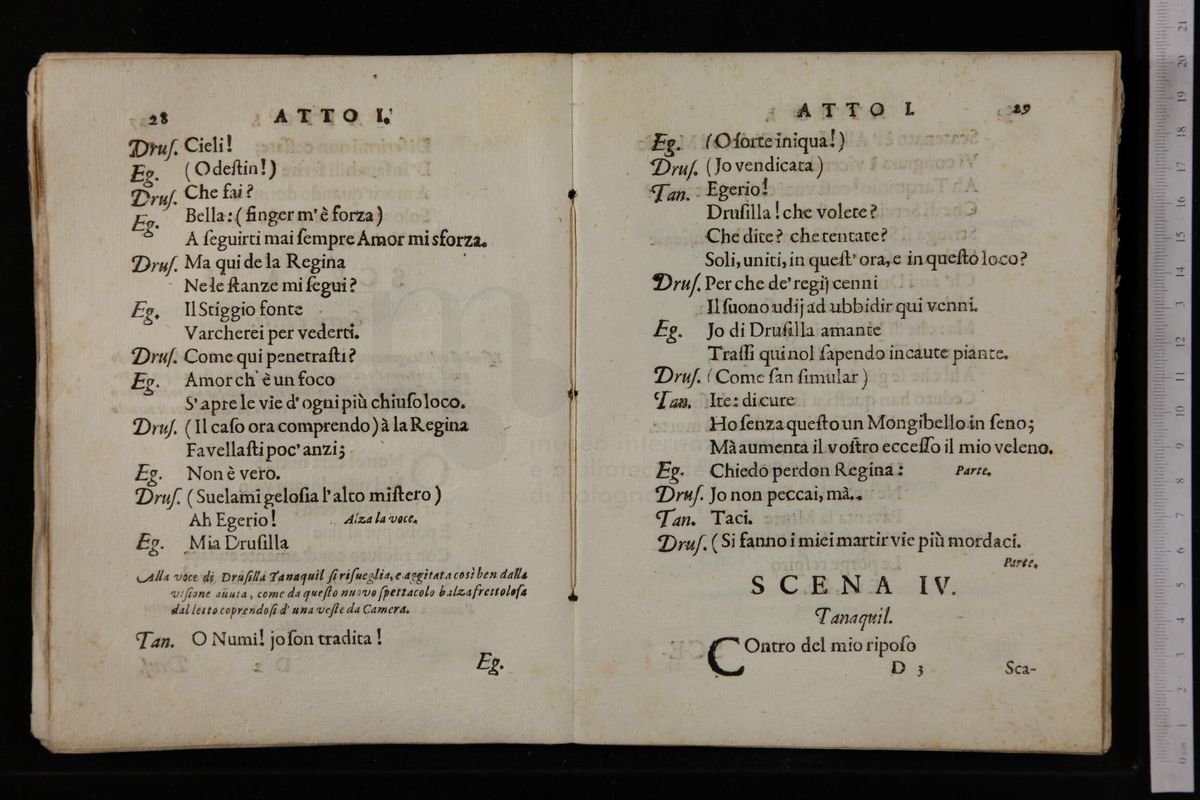 28 ATTO I.
Druſ. Cieli!
Eg. (O deſtin!)
Druſ. Che fai?
Eg. Bella: (finger m' è forza)
A ſeguirti mai ſempre Amor mi sforza.
Druſ. Ma qui de la Regina
Ne le ſtanze mi ſegui?
Eg. Il Stiggio fonte
Varcherei per vederti.
Druſ. Come qui penetraſti?
Eg. Amor ch' è un foco
S' apre le vie d' ogni più chiuſo loco.
Druſ. (Il caſo ora comprendo) à la Regina
Favellaſti poc' anzi;
Eg. Non è vero.
Druſ. (Suelami geloſia l' alto miſtero)
Ah Egerio! Alza la voce.
Eg. Mia Druſilla
Alla voce di Druſilla Tanaquil ſi riſueglia, e aggitata così ben dalla
viſione auuta, come da queſto nuovo ſpettacolo balza frettoloſa
dal letto coprendoſi d' una veſte da Camera.
Tan. O Numi! jo ſon tradita!
Eg.
ATTO I. 29
Eg. (O ſorte iniqua!)
Druſ. (Jo vendicata)
Tan. Egerio!
Druſilla! che volete?
Che dite? che tentate?
Soli, uniti, in queſt' ora, e in queſto loco?
Druſ. Per che de' regij cenni
Il ſuono udij ad ubbidir qui venni.
Eg. Jo di Druſilla amante
Traſſi qui nol ſapendo incaute piante.
Druſ. (Come ſan ſimular)
Tan. Ite: di cure
Ho ſenza queſto un Mongibello in ſeno;
Mà aumenta il voſtro ecceſſo il mio veleno.
Eg. Chiedo perdon Regina: Parte.
Druſ. Jo non peccai, mà..
Tan. Taci.
Druſ. (Si fanno i miei martir vie più mordaci.
Parte.
SCENA IV.
Tanaquil.
COntro del mio ripoſo
D 3 Sca-